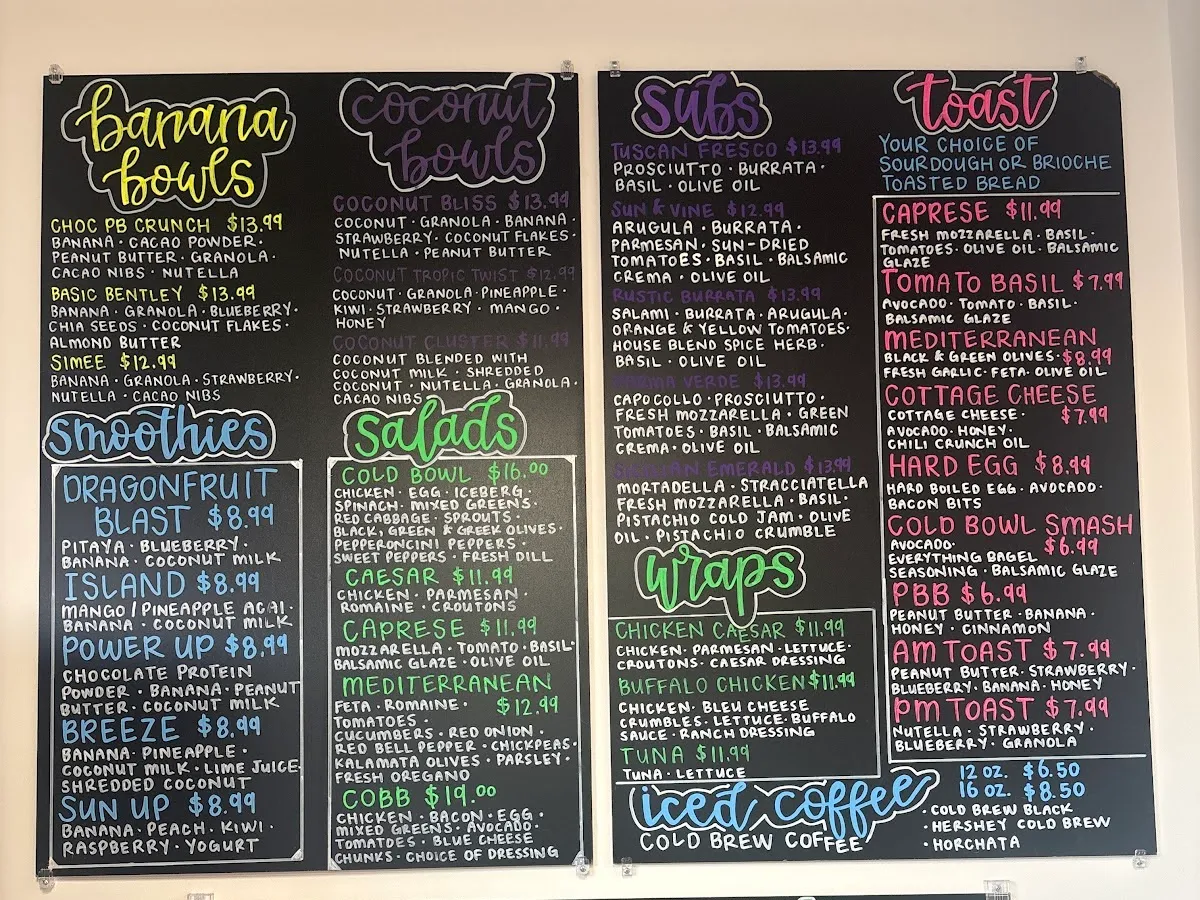 banana
bowls
CHOC PB CRUNCH $13.99
BANANA · CACAO POWDER ·
PEANUT BUTTER · GRANOLA ·
CACAO NIBS · NUTELLA
BASIC BENTLEY $13.99
BANANA · GRANOLA · BLUEBERRY ·
CHIA SEEDS · COCONUT FLAKES ·
ALMOND BUTTER
SIMEE $12.99
BANANA · GRANOLA · STRAWBERRY ·
NUTELLA · CACAO NIBS
smoothies
DRAGONFRUIT
BLAST $8.99
PITAYA · BLUEBERRY ·
BANANA · COCONUT MILK
ISLAND $8.99
MANGO / PINEAPPLE ACAI ·
BANANA · COCONUT MILK
POWER UP $8.99
CHOCOLATE PROTEIN
POWDER · BANANA · PEANUT
BUTTER · COCONUT MILK
BREEZE $8.99
BANANA · PINEAPPLE ·
COCONUT MILK · LIME JUICE ·
SHREDDED COCONUT
SUN UP $8.99
BANANA · PEACH · KIWI ·
RASPBERRY · YOGURT
coconut
bowls
COCONUT BLISS $13.99
COCONUT · GRANOLA · BANANA ·
STRAWBERRY · COCONUT FLAKES ·
NUTELLA · PEANUT BUTTER
COCONUT TROPIC TWIST $12.99
COCONUT · GRANOLA · PINEAPPLE ·
KIWI · STRAWBERRY · MANGO ·
HONEY
COCONUT CLUSTER $11.99
COCONUT BLENDED WITH
COCONUT MILK · SHREDDED
COCONUT · NUTELLA · GRANOLA ·
CACAO NIBS
salads
COLD BOWL $16.00
CHICKEN · EGG · ICEBERG ·
SPINACH · MIXED GREENS ·
RED CABBAGE · SPROUTS ·
BLACK, GREEN & GREEK OLIVES ·
PEPPERONCINI PEPPERS ·
SWEET PEPPERS · FRESH DILL
CAESAR $11.99
CHICKEN · PARMESAN ·
ROMAINE · CROUTONS
CAPRESE $11.99
MOZZARELLA · TOMATO · BASIL ·
BALSAMIC GLAZE · OLIVE OIL
MEDITERRANEAN
FETA · ROMAINE · $12.99
TOMATOES ·
CUCUMBERS · RED ONION ·
RED BELL PEPPER · CHICKPEAS ·
KALAMATA OLIVES · PARSLEY ·
FRESH OREGANO
COBB $19.00
CHICKEN · BACON · EGG ·
MIXED GREENS · AVOCADO ·
TOMATOES · BLUE CHEESE
CHUNKS · CHOICE OF DRESSING
subs
TUSCAN FRESCO $13.99
PROSCIUTTO · BURRATA ·
BASIL · OLIVE OIL
SUN & VINE $12.99
ARUGULA · BURRATA ·
PARMESAN · SUN-DRIED
TOMATOES · BASIL · BALSAMIC
CREMA · OLIVE OIL
RUSTIC BURRATA $13.99
SALAMI · BURRATA · ARUGULA ·
ORANGE & YELLOW TOMATOES ·
HOUSE BLEND SPICE HERB ·
BASIL · OLIVE OIL
PARMA VERDE $13.99
CAPOCOLLO · PROSCIUTTO ·
FRESH MOZZARELLA · GREEN
TOMATOES · BASIL · BALSAMIC
CREMA · OLIVE OIL
EMERALD $13.99
MORTADELLA · STRACCIATELLA
FRESH MOZZARELLA · BASIL ·
PISTACHIO COLD JAM · OLIVE
OIL · PISTACHIO CRUMBLE
wraps
CHICKEN CAESAR $11.99
CHICKEN · PARMESAN · LETTUCE ·
CROUTONS · CAESAR DRESSING
BUFFALO CHICKEN $11.99
CHICKEN · BLEU CHEESE
CRUMBLES · LETTUCE · BUFFALO
SAUCE · RANCH DRESSING
TUNA $11.99
TUNA · LETTUCE
toast
YOUR CHOICE OF
SOURDOUGH OR BRIOCHE
TOASTED BREAD
CAPRESE $11.99
FRESH MOZZARELLA · BASIL ·
TOMATOES · OLIVE OIL · BALSAMIC
GLAZE
TOMATO BASIL $7.99
AVOCADO · TOMATO · BASIL ·
BALSAMIC GLAZE
MEDITERRANEAN
BLACK & GREEN OLIVES · $8.99
FRESH GARLIC · FETA · OLIVE OIL
COTTAGE CHEESE
COTTAGE CHEESE · $7.99
AVOCADO · HONEY ·
CHILI CRUNCH OIL
HARD EGG $8.99
HARD BOILED EGG · AVOCADO ·
BACON BITS
COLD BOWL SMASH
AVOCADO · $6.99
EVERYTHING BAGEL
SEASONING · BALSAMIC GLAZE
PBB $6.99
PEANUT BUTTER · BANANA ·
HONEY · CINNAMON
AM TOAST $7.99
PEANUT BUTTER · STRAWBERRY ·
BLUEBERRY · BANANA · HONEY
PM TOAST $7.99
NUTELLA · STRAWBERRY ·
BLUEBERRY · GRANOLA
iced coffee
COLD BREW COFFEE
12 OZ. $6.50
16 OZ. $8.50
· COLD BREW BLACK
· HERSHEY COLD BREW
· HORCHATA